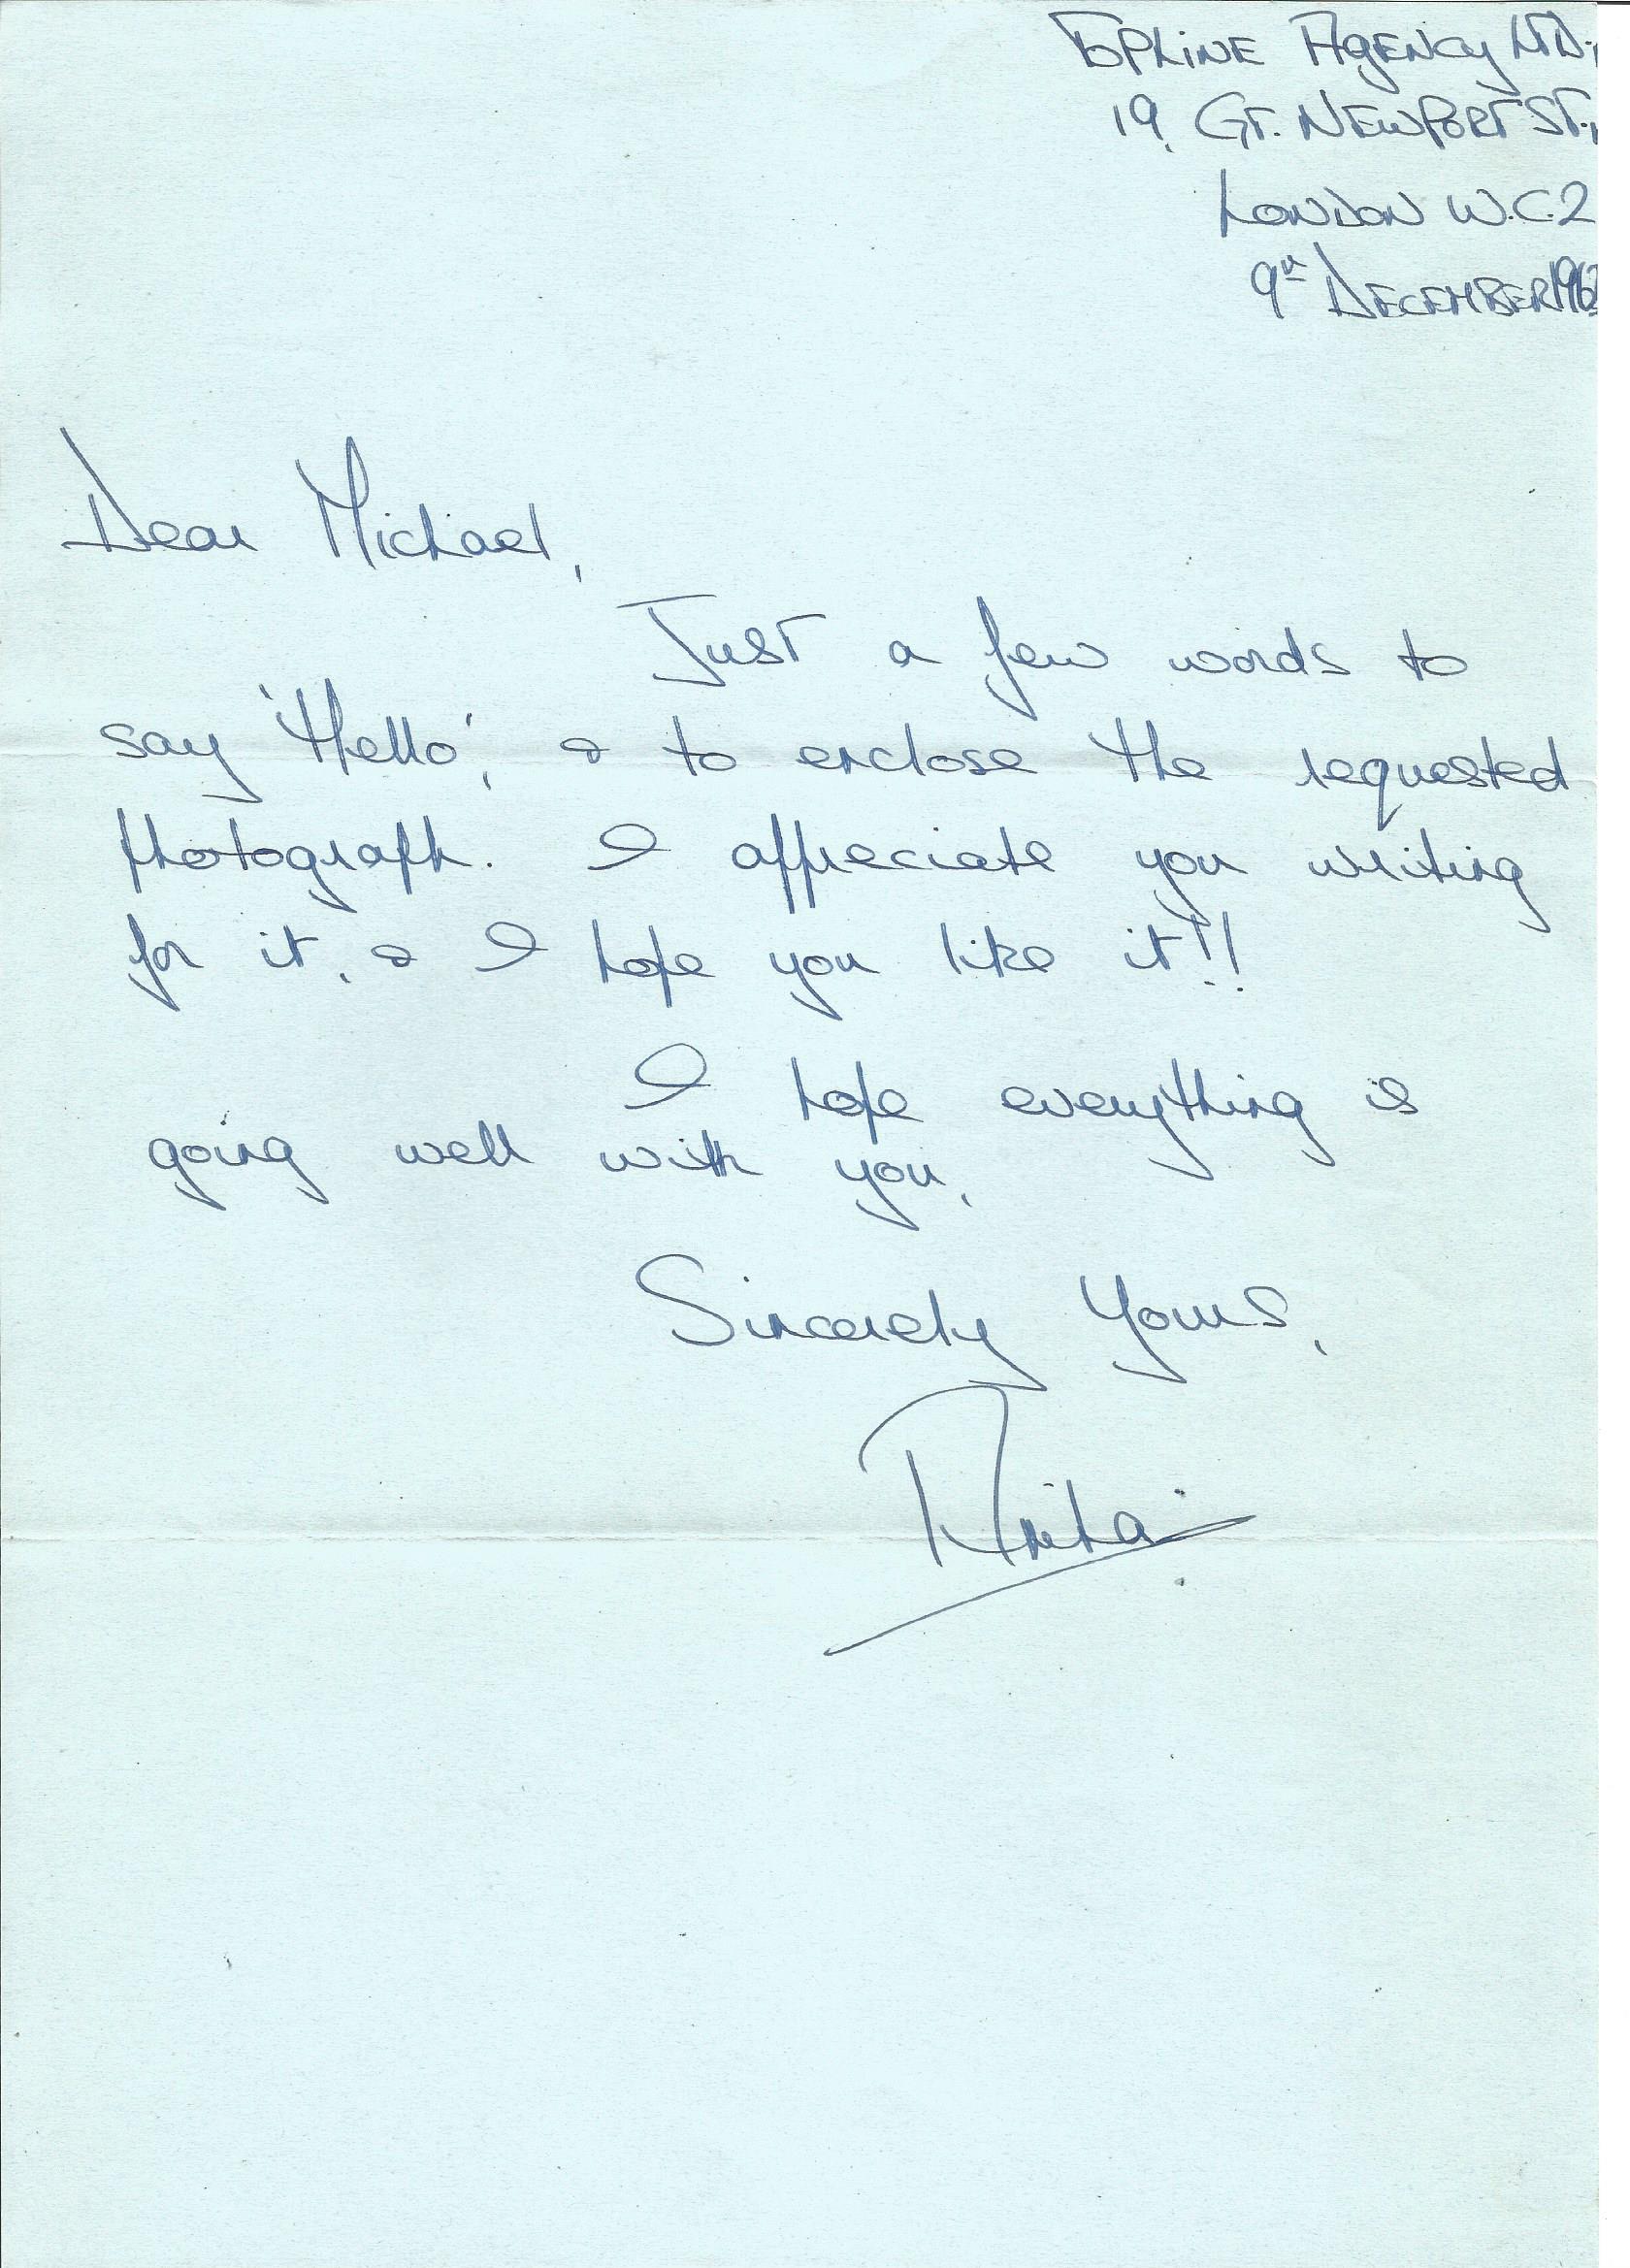 TOPLINE AGENCY LTD.,
19, GT. NEWPORT ST.,
LONDON W.C.2
9th DECEMBER 196
Dear Michael,
Just a few words to
say 'Hello', & to enclose the requested
photograph. I appreciate you writing
for it, & I hope you like it!!
I hope everything is
going well with you,
Sincerely Yours,